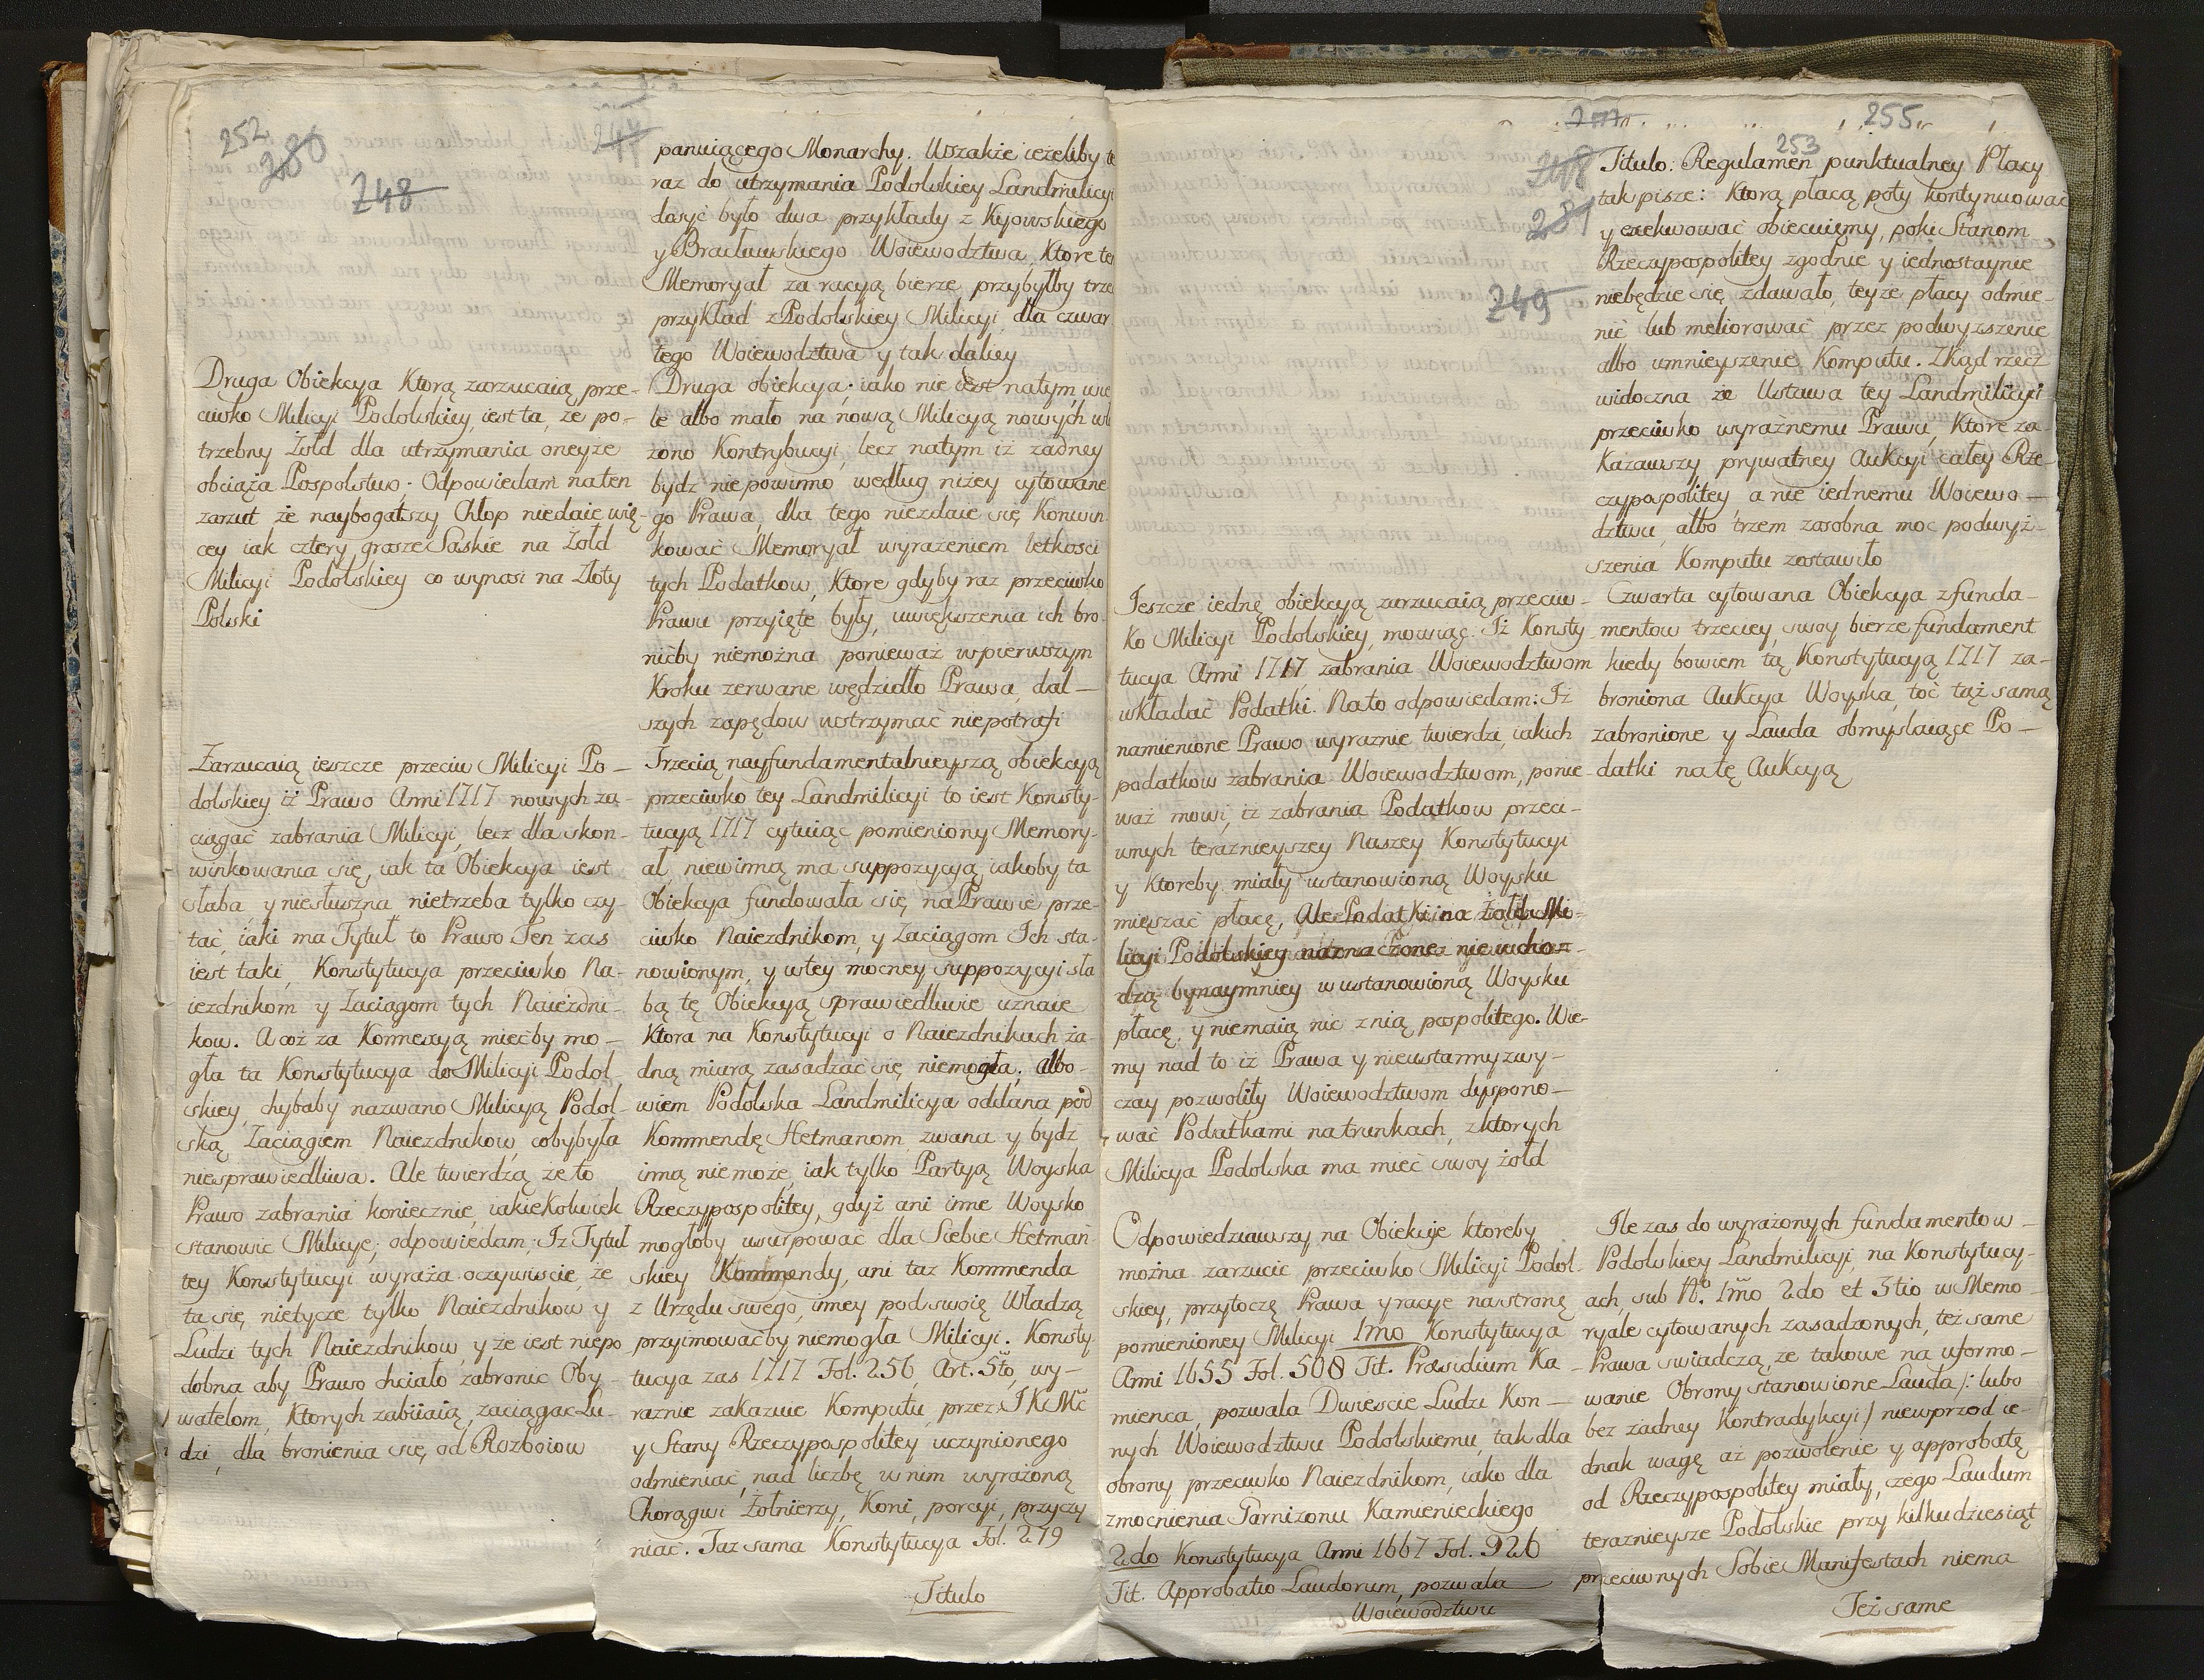 252
280
248
244
Druga Obiekcya Ktorą zarzucaią prze-
ciwko Milicyi Podolskiey, iest ta, że po-
trzebny Żołd dla utrzymania oneyże
obciąża Pospolstwo. Odpowiedam na ten
zarzut że naybogatszy Chłop niedaie wię-
cey iak cztery grosze Saskie na Żołd
Milicyi Podolskiey co wynosi na Złoty
Polski
Zarzucaią ieszcze przeciw Milicyi Po-
dolskiey iż Prawo Anni 1717 nowych za-
ciągać zabrania Milicyi, lecz dla skon-
winkowania się, iak ta Obiekcya iest
słaba y niesłuszna nietrzeba tylko czy-
tać, iaki ma Tytuł to Prawo Ten zas
iest taki, Konstytucya przeciwko Na-
iezdnikom y Zaciągom tych Naiezdni-
kow. A coż za Konnexyą mieć by mo-
gła ta Konstytucya do Milicyi Podol-
skiey, chybaby nazwano Milicyą Podol-
ską Zaciągiem Naiezdnikow, coby była
niesprawiedliwa. Ale twierdzą że to
Prawo zabrania koniecznie, iakieKolwiek
stanowic Milicye; odpowiedam; Iż Tytuł
tey Konstytucyi wyraża oczywiscie, że
ta się nietycze tylko Naiezdnikow y
Ludzi tych Naiezdnikow, y że iest niepo
dobna aby Prawo chciało zabronic Oby-
watelom, Ktorych zabiiaią, zaciągac Lu-
dzi, dla bronienia się od Rozboiow
panuiącego Monarchy. Wszakże ieżeliby te
raz do utrzymania Podolskiey Landmilicyi
dosyć było dwa przykłady z Kijowskiego
y Bracławskiego Woiewodztwa, Ktore ten
Memoryał za racyą bierze przybyłby trze
przykład z Podolskiey Milicyi dla czwar
tego Woiewodztwa y tak daliey
Druga obiekcya; iako nie iest natym, wie
le albo mało na nową Milicyą nowych wło
żono Kontrybucyi, lecz natym iż żadney
bydz niepowinno według niżey cytowane
go Prawa, dla tego niezdaie się Konwin
kować Memoryał wyrażeniem letkości
tych Podatkow, Ktore gdyby raz przeciwko
Prawu przyięte były, uwiększenia ich bro-
nićby niemożna ponieważ w pierwszym
Kroku zerwane wędzidło Prawa, dal-
szych zapędow wstrzymać niepotrafi
Trzecią nayfundamentalnieyszą obiekcyą
przeciwko tey Landmilicyi to iest Konsty-
tucyą 1717 cytuiąc pomieniony Memory-
ał niewinną ma suppozycyą iakoby ta
Obiekcya fundowała się na Prawie prze-
ciwko Naiezdnikom, y Zaciągom Ich sta-
nowionym, y w tey mocney suppozycyi sła
bą tę Obiekcyą sprawiedliwie uznaie
Ktora na Konstytucyi o Naiezdnikach ża-
dną miarą zasadzać się niemogła; albo-
wiem Podolska Landmilicya oddana pod
Kommendę Hetmanom, zwana y bydz
inną niemoże, iak tylko Partyą Woyska
Rzeczypospolitey, gdyż ani inne Woysko
mogłoby usurpować dla Siebie Hetmań
skiey Kommendy, ani taż Kommenda
z Urzędu swego, inney pod swoię Władzą
przyimować by niemogła Milicyi. Konsty
tucya zas 1717 Fol. 256, Art. 5to, wy-
raznie zakazuie Komputu, przez JKMć
y Stany Rzeczypospolitey uczynionego
odmieniać, nad liczbę w nim wyrażoną
Chorągwi Żołnierzy, Koni, porcyi, przyczy
niać. Taż sama Konstytucya Fol. 279
Titulo
249
Ieszcze iednę obiekcyą zarzucaią przeciw-
ko Milicyi Podolskiey, mowiąc. Iż Konsty
tucya Anni 1717 zabrania Woiewodztwom
wkładać Podatki. Na to odpowiedam: Iż
namienione Prawo wyraznie twierdzi, iakich
podatkow zabrania Woiewodztwom, ponie-
waż mowi, iż zabrania Podatkow przeci-
wnych teraznieyszey Naszey Konstytucyi
y Ktoreby miały ustanowioną Woysku
mięszać płacę, Ale Podatki na Żołd Mi-
licyi Podolskiey naznaczone nie wcho-
dzą bynaymniey w ustanowioną Woysku
płacę, y niemaią nic z nią pospolitego. Wie-
my nad to iż Prawa y nieustanny zwy-
czay pozwoliły Woiewodztwom dyspono-
wać Podatkami na trunkach, z ktorych
Milicya Podolska ma mieć swoy żołd
Odpowiedziawszy na Obiekcye ktoreby
można zarzucic przeciwko Milicyi Podol-
skiey, przytoczę Prawa y racye na stronę
pomienioney Milicyi 1mo Konstytucya
Anni 1655 Fol. 508 Tit. Præsidium Ka-
mienca, pozwala Dwieście Ludzi Kon-
nych Woiewodztwu Podolskiemu, tak dla
obrony przeciwko Naiezdnikom, iako dla
zmocnienia Garnizonu Kamienieckiego
2do Konstytucya Anni 1667 Fol. 926
Tit. Approbatio Laudorum, pozwala
Woiewodztwu
255
253
248
281
Titulo: Regulamen punktualney Płacy
tak pisze: Ktorą płacą poty kontynuować
y exekwować obiecuiemy, poki Stanom
Rzeczypospolitey zgodnie y iednostaynie
niebędzie się zdawało, teyże płacy odmie-
nić lub meliorować przez podwyższenie
albo umnieyszenie Komputu. Zkąd rzecz
widoczna że Ustawa tey Landmilicyi
przeciwko wyraźnemu Prawu, Ktore za-
Kazawszy prywatney Aukcyi całey Rze-
czypospolitey a nie iednemu Woiewo-
dztwu, albo trzem zasobna moc podwyż-
szenia Komputu zostawiło
Czwarta cytowana Obiekcya z funda-
mentow trzeciey swoy bierze fundament
kiedy bowiem tą Konstytucyą 1717 za-
broniona Aukcya Woyska, toć tąż samą
zabronione y Lauda obmyslaiące Po-
datki na tę Aukcyą
Ile zas do wyrażonych fundamentow
Podolskiey Landmilicyi, na Konstytucy-
ach, sub No. 1mo 2do et 3tio w Memo-
ryale cytowanych zasadzonych, też same
Prawa swiadczą, że takowe na uformo-
wanie Obrony stanowione Lauda /: lubo
bez żadney Kontradykcyi / niewprzod ie-
dnak wagę aż pozwolenie y approbatę
od Rzeczypospolitey miały, czego Laudum
teraznieysze Podolskie przy kilkudziesiąt
przeciwnych Sobie Manifestach niema
Też same